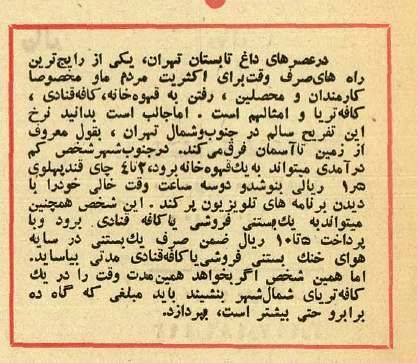 درعصرهای داغ تابستان تهران، یکی از رایج‌ترین
راه های‌صرف وقت‌برای اکثریت مردم ماو مخصوصا
کارمندان و محصلین ، رفتن به قهوه‌خانه،کافه‌قنادی ،
کافه‌تریا و امثالهم است . اماجالب است بدانید نرخ
این تفریح سالم در جنوب‌وشمال تهران ، بقول معروف
از زمین تاآسمان فرق‌می‌کند. درجنوب‌شهرشخص کم
درآمدی میتواند به‌یك‌قهوه‌خانه‌برود،۲تا۴ چای قندپهلوی
۱ر۵ ریالی بنوشدو دوسه ساعت وقت خالی خودرا با
دیدن برنامه های تلویزیون پرکند . این شخص همچنین
میتواندبه یك‌بستنی فروشی یاکافه قنادی برود وبا
پرداخت ۵تا۱۰ ریال ضمن صرف یك‌بستنی در سایه
هوای خنك بستنی فروشی‌یاکافه‌قنادی مدتی بیاساید.
اما همین شخص اگربخواهد همین‌مدت وقت را در یك
کافه‌تریای شمال‌شهر بنشیند باید مبلغی که گاه ده
برابرو حتی بیشتر است، بپردازد.